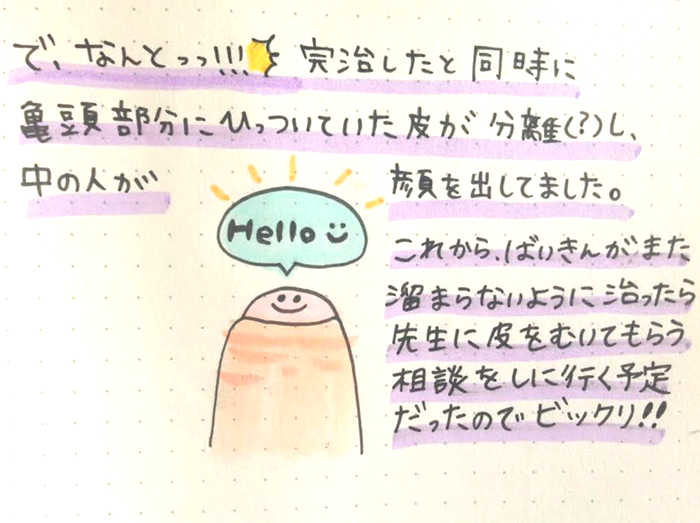 で、なんとっっ!!! 完治したと同時に
亀頭部分にひっついていた皮が分離(?)し、
中の人が
顔を出してました。
Hello
これから、ばいきんがまた
溜まらないように治ったら
先生に皮をむいてもらう
相談をしに行く予定
だったのでビックリ!!